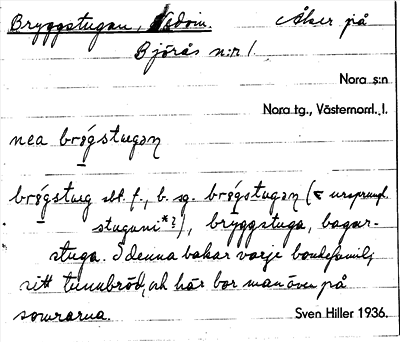 Bryggstugan, Nedom. Åker på
Björås n:r 1.
Nora s:n
Nora tg., Västernorrl. l.
nea brøgstugən
brøgstug sbt. f., b. sg. brøgstugən (< urspr.
stuguni*?), bryggstuga, bagar-
stuga. I denna bakar varje bondefamilj
sitt tunnbröd, och här bor man även på
somrarna.
Sven Hiller 1936.